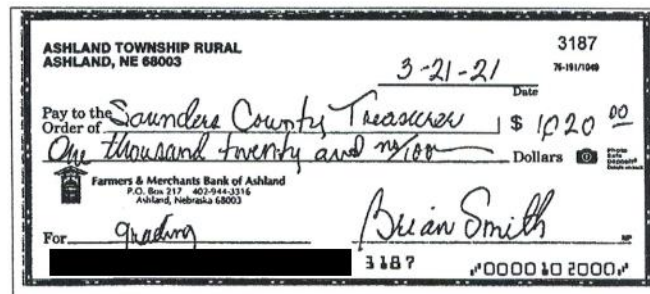 ASHLAND TOWNSHIP RURAL
ASHLAND, NE 68003
3187
76-191/1049
3-21-21
Date
Pay to the Order of Saunders County Treasurer $ 1,020 00
One thousand twenty and no/100 Dollars
Photo Safe Deposit®
Details on back
Farmers & Merchants Bank of Ashland
P.O. Box 217 402-944-3316
Ashland, Nebraska 68003
For grading Brian Smith
MP
3187 ⑈0000102000⑈